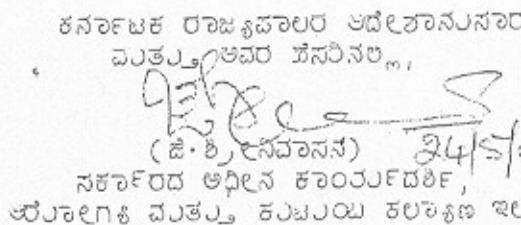 ಕರ್ನಾಟಕ ರಾಜ್ಯಪಾಲರ ಆದೇಶಾನುಸಾರ
ಮತ್ತು ಅವರ ಹೆಸರಿನಲ್ಲಿ,
(ಜಿ. ಶ್ರೀನಿವಾಸನ್)
24/5/
ಸರ್ಕಾರದ ಅಧೀನ ಕಾರ್ಯದರ್ಶಿ,
ಆರೋಗ್ಯ ಮತ್ತು ಕುಟುಂಬ ಕಲ್ಯಾಣ ಇಲ